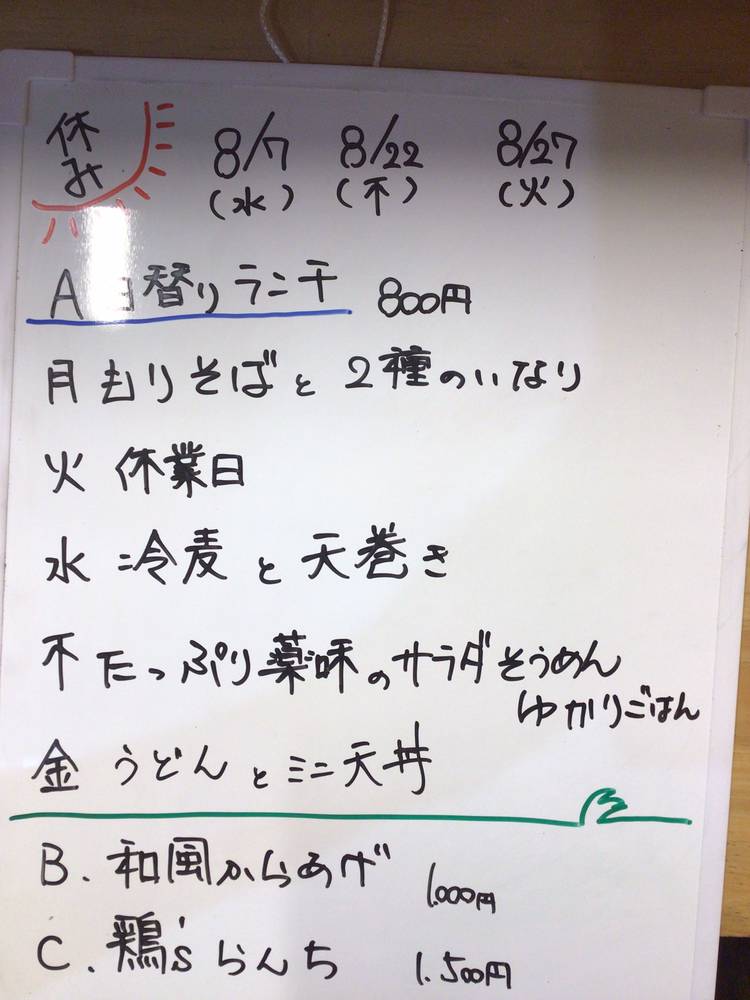 休み 8/7 8/22 8/27
(水) (木) (火)
A 日替りランチ 800円
月 もりそばと2種のいなり
火 休業日
水 冷麦と天巻き
木 たっぷり薬味のサラダそうめん
ゆかりごはん
金 うどんとミニ天丼
B. 和風からあげ 1,000円
C. 鶏's らんち 1.500円